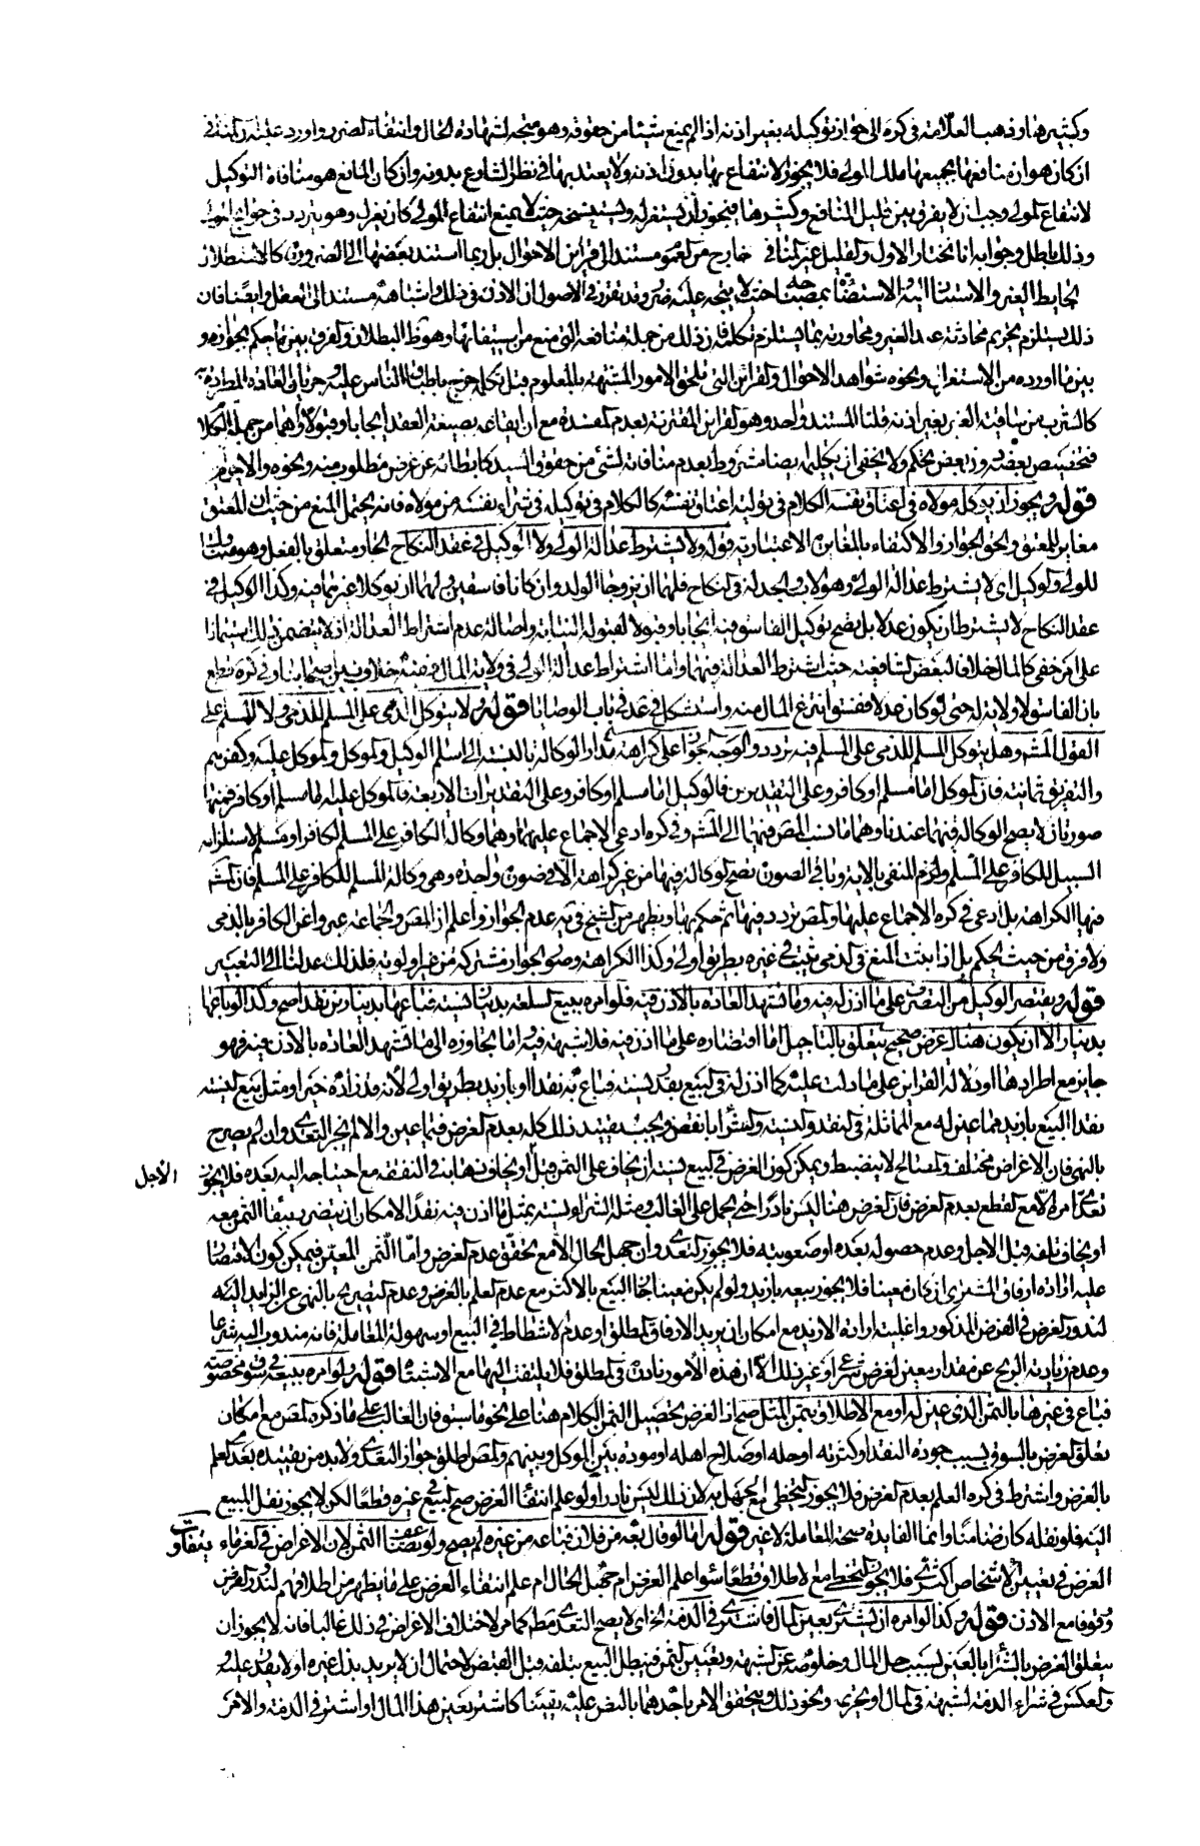 وكثيرها وذهب العلامة في كره الى جواز توكيله بغير اذنه اذا لم يمنع شيئا من حقوقه وهو متجه لشهادة الحال وانتفاء الضرر واورد عليه انه في
ان كان هو ان منافعها بجميعها ملك المولى فلا يجوز الانتفاع بها بدون اذنه ولا يعتد بها في نظر الشارع بدونه وان كان المانع هو منافاة التوكيل
لانتفاع المولى وجب ان لا يفرق بين قليل المنافع وكثيرها فيجوز ان يستغزله ويستنسخه حيث لا يمنع انتفاع المولى كان يغزل وهو يتردد في حوائج المولى
وذلك باطل وجوابه انا نختار الاول والقليل غير المنافي خارج من العموم مستند الى قرائن الاحوال بل ربما استند بعضها الى الضرورة كالاستظلال
بحايط الغير والاستناد اليه والاستضائة بمصباحه حيث لا يتجه عليه ضرر وقد تقرر في الاصول ان الاذن في ذلك واشباهه مستند الى العقل وايضا فان
ذلك يستلزم تحريم محادثة عبد الغير ومحاورته بما يستلزم تكلمه فان ذلك من جملة منافعه التي منع من استيفائها وهو ظ البطلان والفرق بين ما حكم بجوازه و
بين ما اورده من الاستغزال ونحوه شواهد الاحوال والقرائن التي تلحق الامور المشتبهة بالمعلوم
كالشرب من ساقية الغير بغير اذنه قلنا المستند واحد وهو القرائن المقترنة بعدم المفسدة مع ان ايقاعه بصيغة العقد ايجابا وقبولا وانهما من جملة الكلام
فتخصيص بعضه دون بعض تحكم ولا يخفى ان تكليمه ايضا مشروط بعدم منافاته لشئ من حقوق السيد كابطائه عن غرض مطلوب منه ونحوه والاحرم
قوله ويجوز ان يوكله مولاه في اعتاق نفسه الكلام في توليه اعتاق نفسه كالكلام في توكيله في شراء نفسه من مولاه فانه يحتمل المنع من حيث ان المعتق
مغاير للمعتق والحق الجواز والاكتفاء بالمغايرة الاعتبارية قوله ولا يشترط عدالة الولي ولا الوكيل في عقد النكاح الجار متعلق بالفعل وهو مثبت
للولي والوكيل اي لا يشترط عدالة الولي وهو الاب والجد له في النكاح فلهما ان يزوجا الولد وان كانا فاسقين ولهما ان يوكلا غيرهما فيه وكذا الوكيل في
عقد النكاح لا يشترط ان يكون عدلا بل يصح توكيل الفاسق فيه ايجابا وقبولا لقبوله النيابة واصالة عدم اشتراط العدالة اذ لا يتضمن ذلك استيمانا
على امر خفي كالمال خلافا لبعض الشافعية حيث اشترط العدالة فيهما واما اشتراط عدالة الولي في ولاية المال ففيه خلاف بين اصحابنا وفي كره قطع
بان الفاسق لا ولاية له حتى لو كان عدلا ففسق انتزع المال منه واستشكل في عد في باب الوصايا قوله ولا يتوكل الذمي على المسلم للذمي ولا للمسلم على
القول المشهور وهل يتوكل المسلم للذمي على المسلم فيه تردد والوجه الجواز على كراهية مدار الوكالة بالنسبة الى اسلام الوكيل والموكل والموكل عليه وكفرهم
والتفريق ثمانية فان الموكل اما مسلم او كافر وعلى التقديرين فالوكيل اما مسلم او كافر وعلى التقديرات الاربعة فالموكل عليه اما مسلم او كافر فمنها
صورتان لا يصح الوكالة فيهما عندنا وهما ما نسب المص فيهما الى المشهور وفي كره ادعى الاجماع عليهما وهما وكالة الكافر على المسلم لكافر او مسلم لاستلزامه
السبيل للكافر على المسلم ولزم المنفي بالاية وباقي الصور تصح الوكالة فيها من غير كراهة الا في صورة واحدة وهي وكالة المسلم للكافر على المسلم فان المش
فيها الكراهة بل ادعى في كره الاجماع عليها والمص تردد فيها ثم حكم بها ويظهر من الشيخ في يه عدم الجواز واعلم ان المص والجماعة عبروا عن الكافر بالذمي
ولا فرق من حيث الحكم بل اذا ثبت المنع في الذمي ثبت في غيره بطريق اولى وكذا الكراهة وصور الجواز مشتركة من غير اولوية فلذلك عدلنا الى التعبير
قوله ويقتصر الوكيل من التصرف على ما اذن له فيه وما تشهد العادة بالاذن فيه فلو امره ببيع السلعة بدينار نسية فباعها بدينارين نقدا صح وكذا لو باعها
بدينار الا ان يكون هناك غرض صحيح يتعلق بالتاجيل اما اقتصاره على ما اذن فيه فلا شبهة فيه واما تجاوزه الى ما تشهد العادة بالاذن فيه فهو
جايز مع اطرادها او دلالة القرائن على ما دلت عليه كما اذن له في البيع بقدر نسية فباع به نقدا او بازيد بطريق اولى لانه قد زاده خيرا ومثل البيع نسية
نقدا البيع بازيد مما عين له مع المماثلة في النقد والنسية والشراء بانقص ويجب تقييد ذلك كله بعدم الغرض فيما عين والا لم يجز التعدي وان لم يصرح
بالنهي فان الاغراض مختلفة والمصالح لا تنضبط ويمكن كون الغرض في البيع نسية ان يخاف على الثمن قبل الاجل او يخاف ذهابه في النفقة مع احتياجه اليه بعده فلا يجوز
تعدي امره الا مع القطع بعدم الغرض فان الغرض هنا ليس نادرا حتى يحمل على الغالب ومثله الشراء نسية بمثل ما اذن فيه نقدا لامكان ان يتضرر ببقاء الثمن معه
او يخاف تلفه قبل الاجل وعدم حصوله بعده او صعوبته فلا يجوز التعدي وان جهل الحال الا مع تحقق عدم الغرض واما الثمن المعين فيمكن كون الاقتصار
عليه ارادة ارفاق المشتري ان كان معينا فلا يجوز بيعه بازيد ولو لم يكن معينا جاز البيع بالاكثر مع عدم العلم بالغرض وعدم التصريح بالنهي عن الزايد اليه
لندور الغرض في الفرض المذكور واغلبية ارادة الازيد مع امكان ان يريد الارفاق المطلق او عدم الاشطاط في البيع او سهولة المعاملة فانه مندوب اليه شرعا
وعدم زيادة الربح عن مقدار معين لغرض شرعي او غير ذلك الا ان هذه الامور نادرة في المطلق فلا يلتفت اليها مع الاشتباه قوله ولو امره ببيعه في سوق مخصوصة
فباع في غيرها بالثمن الذي عين له او مع الاطلاق بثمن المثل صح اذ الغرض تحصيل الثمن الكلام هنا على نحو ما سبق فان الغالب على ما ذكره المص مع امكان
تعلق الغرض بالسوق بسبب جودة النقد او كثرته او حله او صلاح اهله او مودة بين الموكل وبينهم والمص اطلق جواز التعدي ولا بد من تقييده بعدم العلم
بالغرض واشترط في كره العلم بعدم الغرض فلا يجوز التخطي مع الجهل به لان ذلك ليس نادرا ولو علم انتفاء الغرض صح البيع في غيره قطعا لكن لا يجوز نقل المبيع
اليه فلو نقله كان ضامنا وانما الفايدة صحة المعاملة لا غير قوله اما لو قال بعه من فلان فباعه من غيره لم يصح ولو تضاعف الثمن لان الاغراض في الغرماء يتفاوت
الغرض في تعيين الاشخاص اكثري فلا يجوز التخطي مع الاطلاق قطعا سواء علم الغرض ام جهل الحال ام علم انتفاء الغرض على ما يظهر من اطلاقهم لندور الغرض
وقوفا مع الاذن قوله وكذا لو امره ان يشتري بعين المال فاشترى في الذمة الخ اي لا يصح التعدي مطلقا كما مر لاختلاف الاغراض في ذلك غالبا فانه لا يجوز ان
يتعلق الغرض بالشراء بالعين بسبب حل المال وخلوصه عن الشبهة وتعيين الثمن فيبطل البيع بتلفه قبل القبض لاحتمال ان لا يريد بذل غيره او لا يقدر عليه
والعكس في شراء الذمة لشبهة في المال او تحريمه ونحو ذلك ويتحقق الامر باحدهما بالنص عليه تعيينا كاشتر بعين هذا المال او اشتر في الذمة والامر